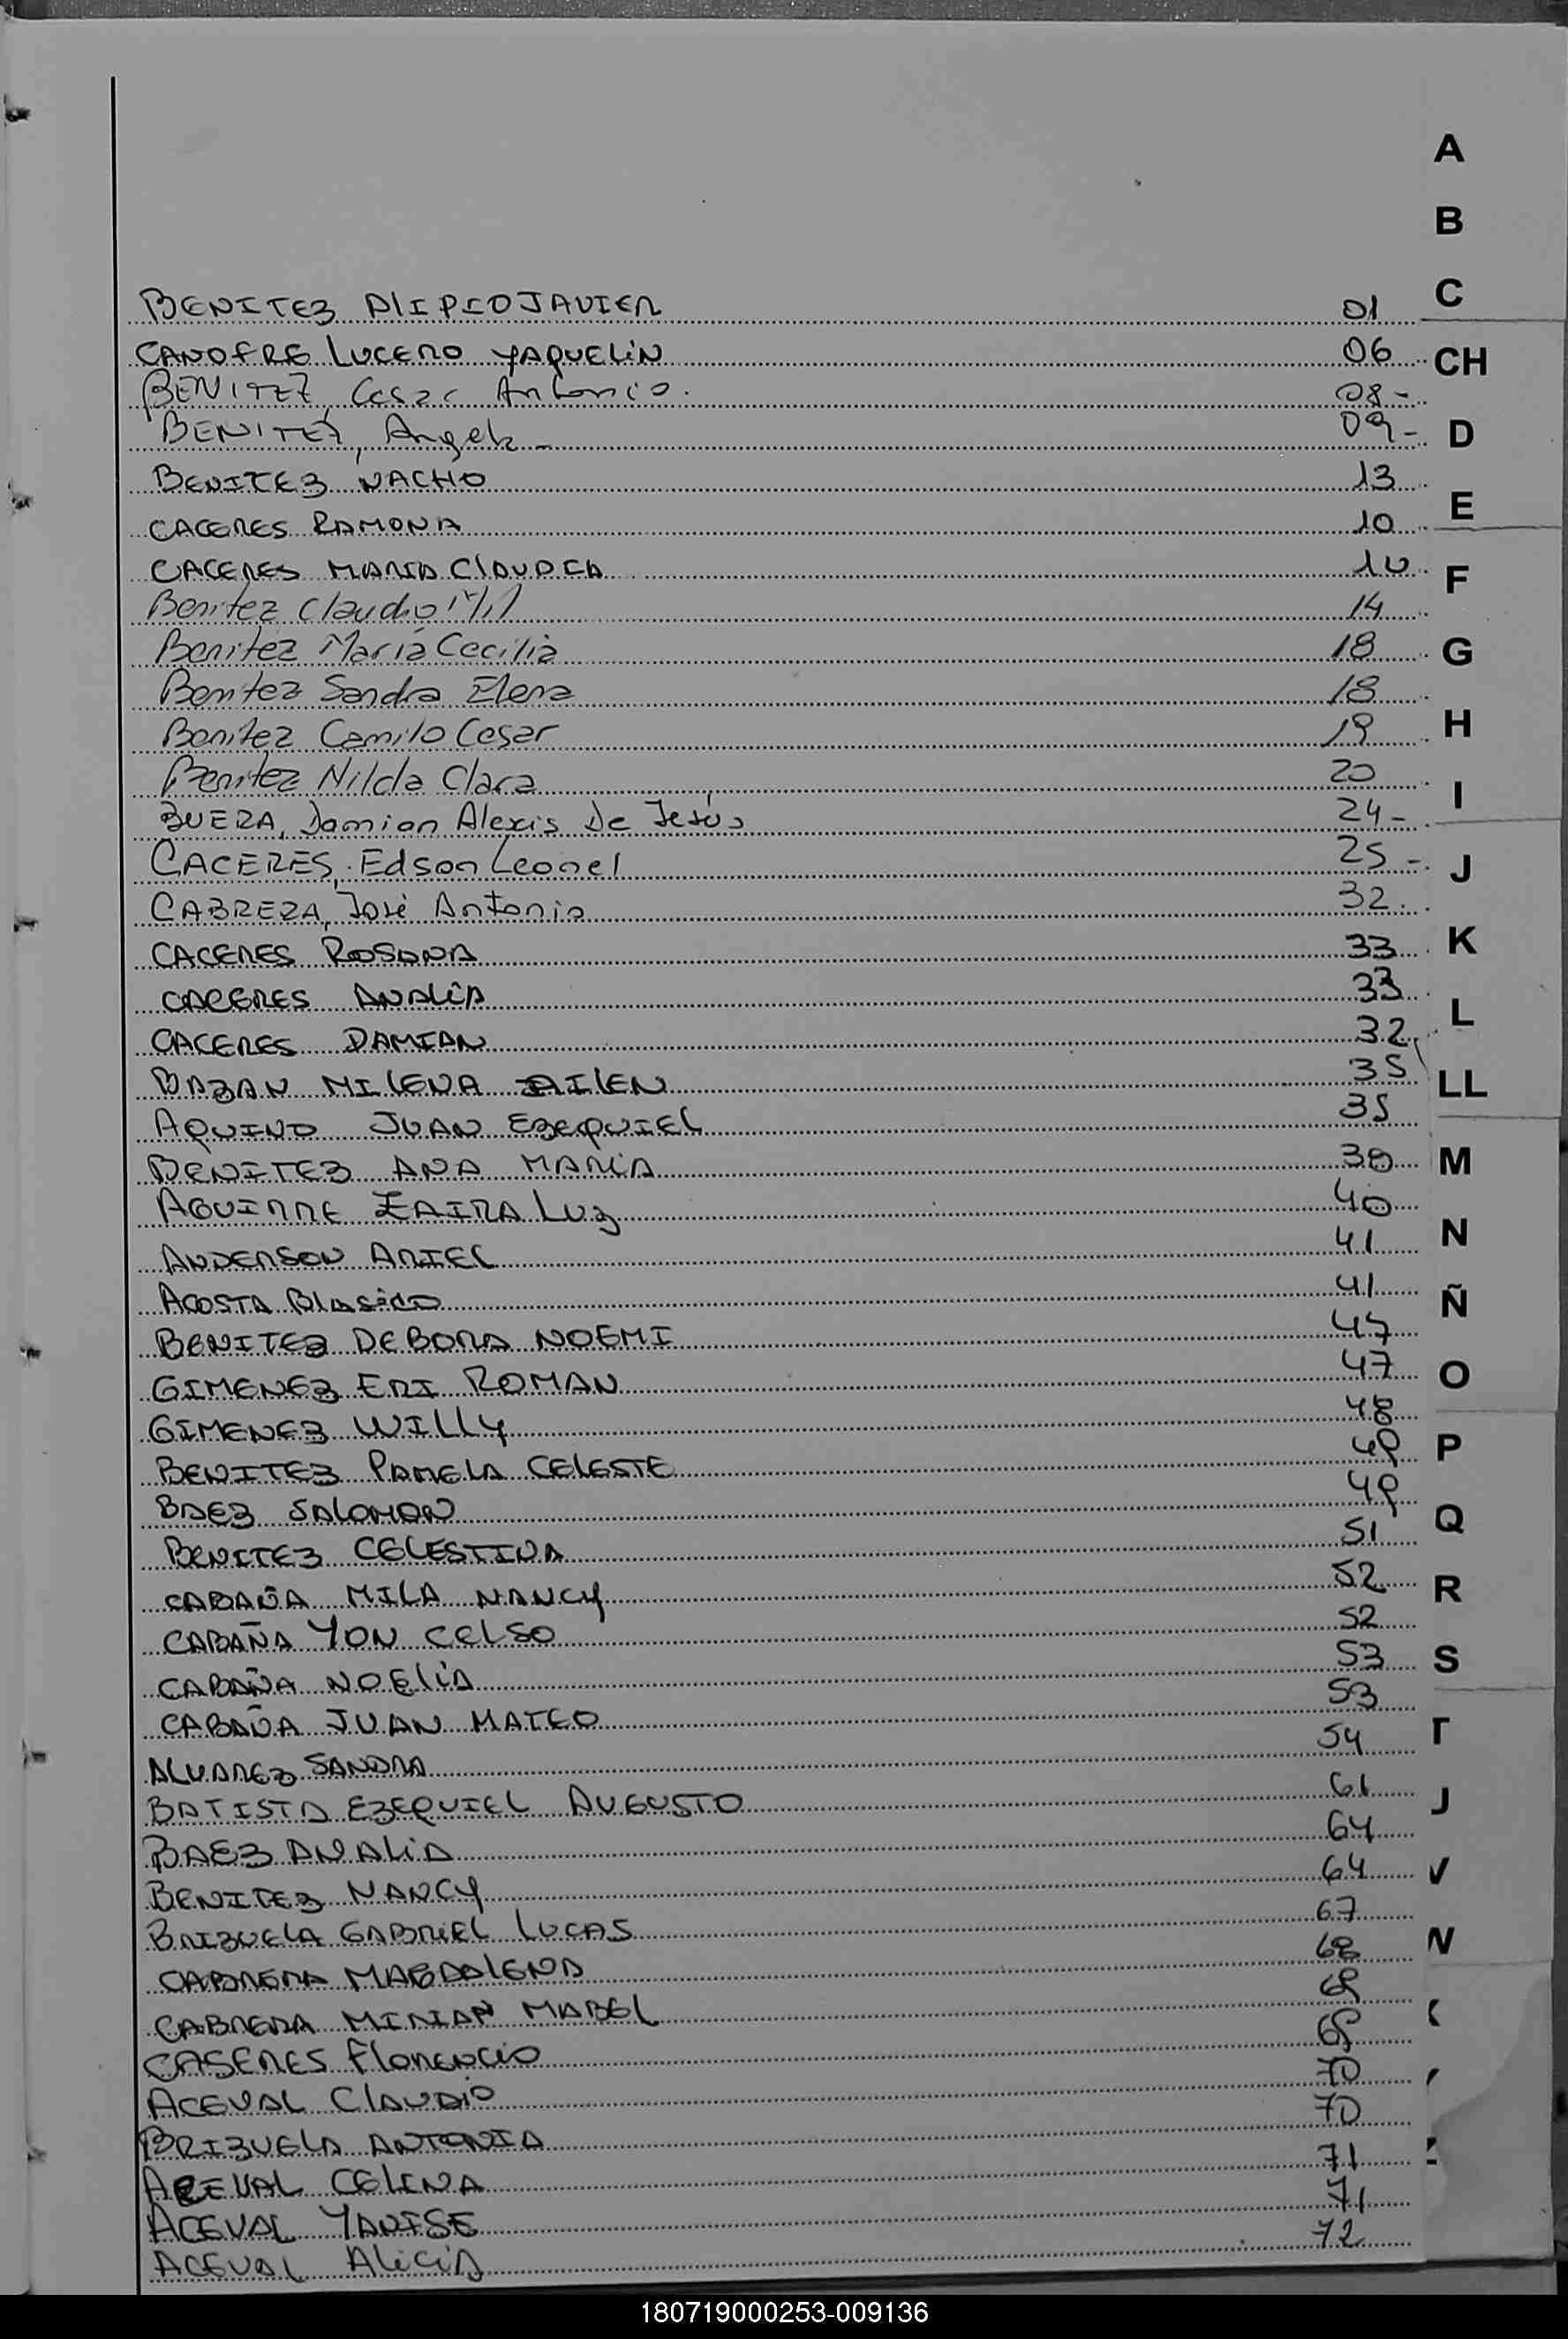 A
B
C
CH
D
E
F
G
H
I
J
K
L
LL
M
N
Ñ
O
P
Q
R
S
T
V
BENITEZ ALIPIO JAVIER 01
CANOFRE LUCERO YAQUELIN 06
BENITEZ, Cesar Antonio. 08-
BENITEZ, Angela - 09-
BENITEZ NACHO 13
CACERES RAMONA 10
CACERES MARIA CLAUDIA 10
Benitez Claudio 14
Benitez María Cecilia 18
Benitez Sandra Elena 18
Benitez Camilo Cesar 19
Benitez Nilda Clara 20
BUERA, Damian Alexis De Jesús 24-
CACERES, Edson Leonel 25-
CABRERA, José Antonio 32.
CACERES ROSANA 33
CACERES ANALÍA 33
CACERES DAMIAN 32
BAZAN MILENA AILEN 35
AQUINO JUAN EZEQUIEL 35
BENITEZ ANA MARIA 38
AGUIRRE ZAIRA LUZ 40
ANDERSON ARIEL 41
ACOSTA BLASICO 41
BENITEZ DEBORA NOEMI 45
GIMENEZ ERI ROMAN 47
GIMENEZ WILLY 48
BENITEZ PAMELA CELESTE 49
BAEZ SALOMON 49
BENITEZ CELESTINA 51
CABAÑA MILA NANCY 52
CABAÑA YON CELSO 52
CABAÑA NOELIA 53
CABAÑA JUAN MATEO 53
ALVAREZ SANDRA 54
BATISTA EZEQUIEL AUGUSTO 61
BAEZ ANALIA 64
BENITEZ NANCY 64
BRIZUELA GABRIEL LUCAS 67
CABRERA MAGDALENA 68
CABRERA MIRIAN MABEL 69
CASERES FLORENCIO 69
ACEVAL CLAUDIO 70
BRIZUELA ANTONIA 70
ACEVAL CELINA 71
ACEVAL YANISE 71
ACEVAL ALICIA 72
180719000253-009136